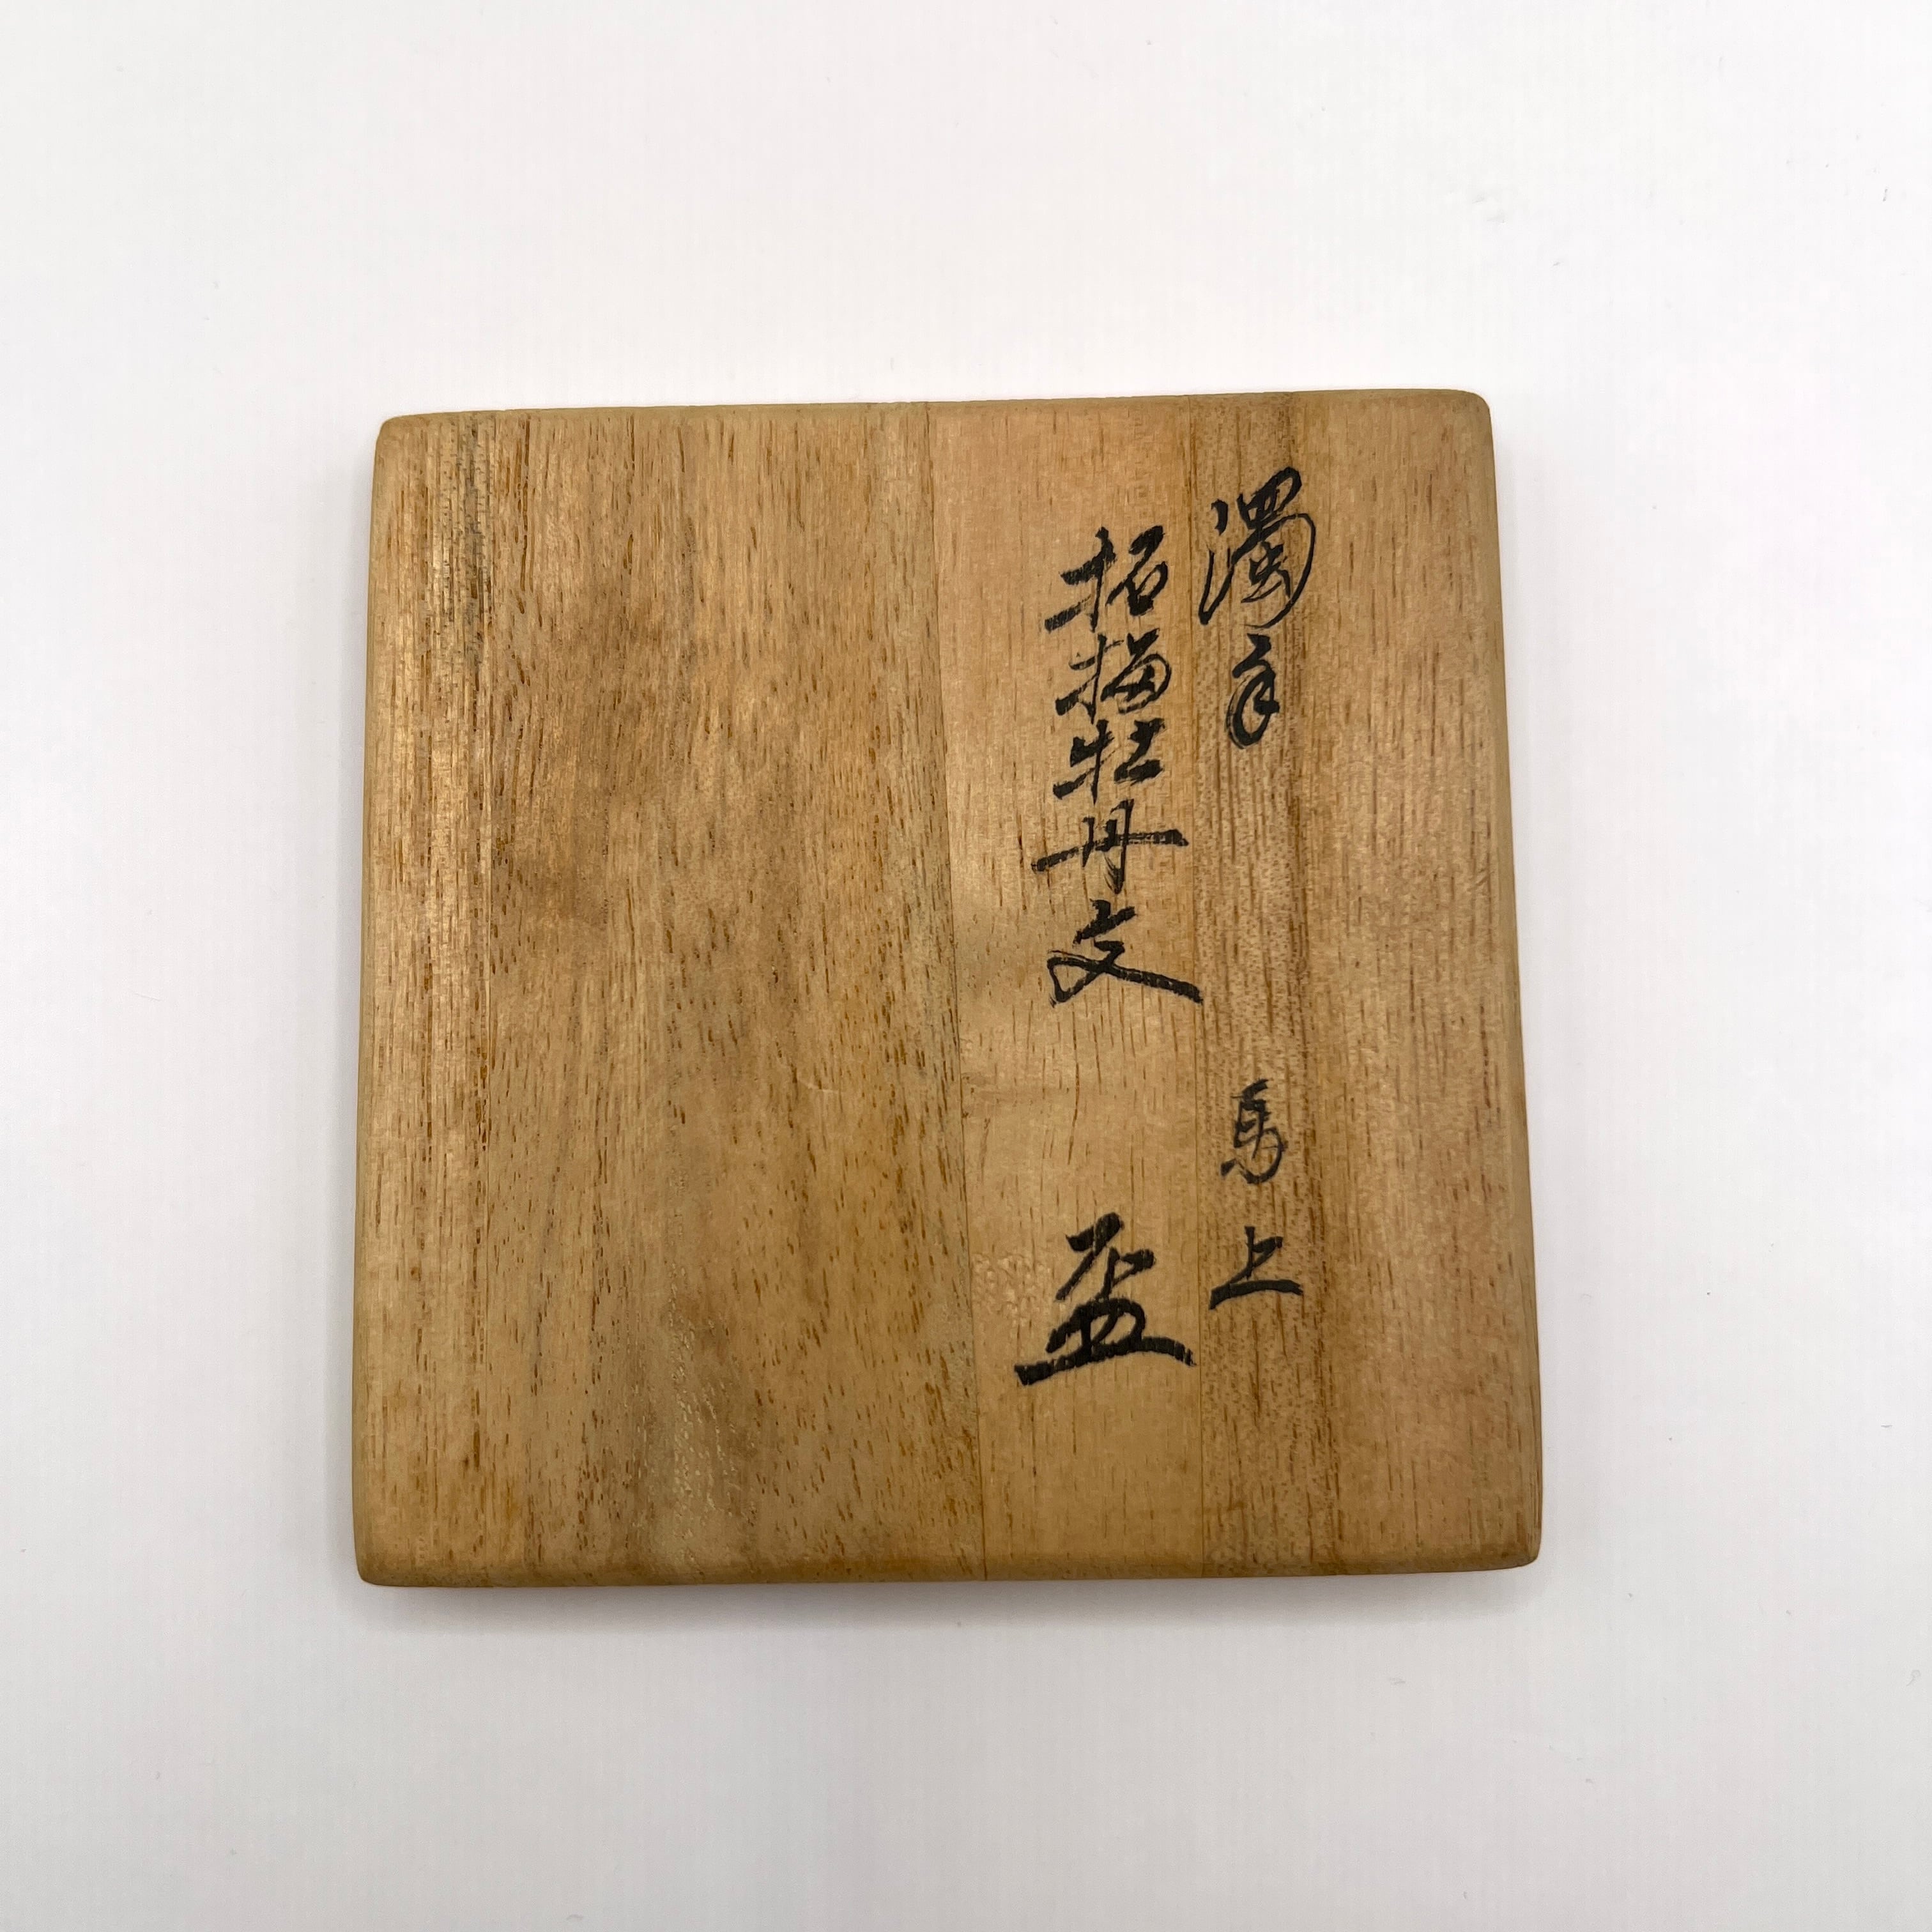 濁手 馬上
柘榴牡丹文 盃